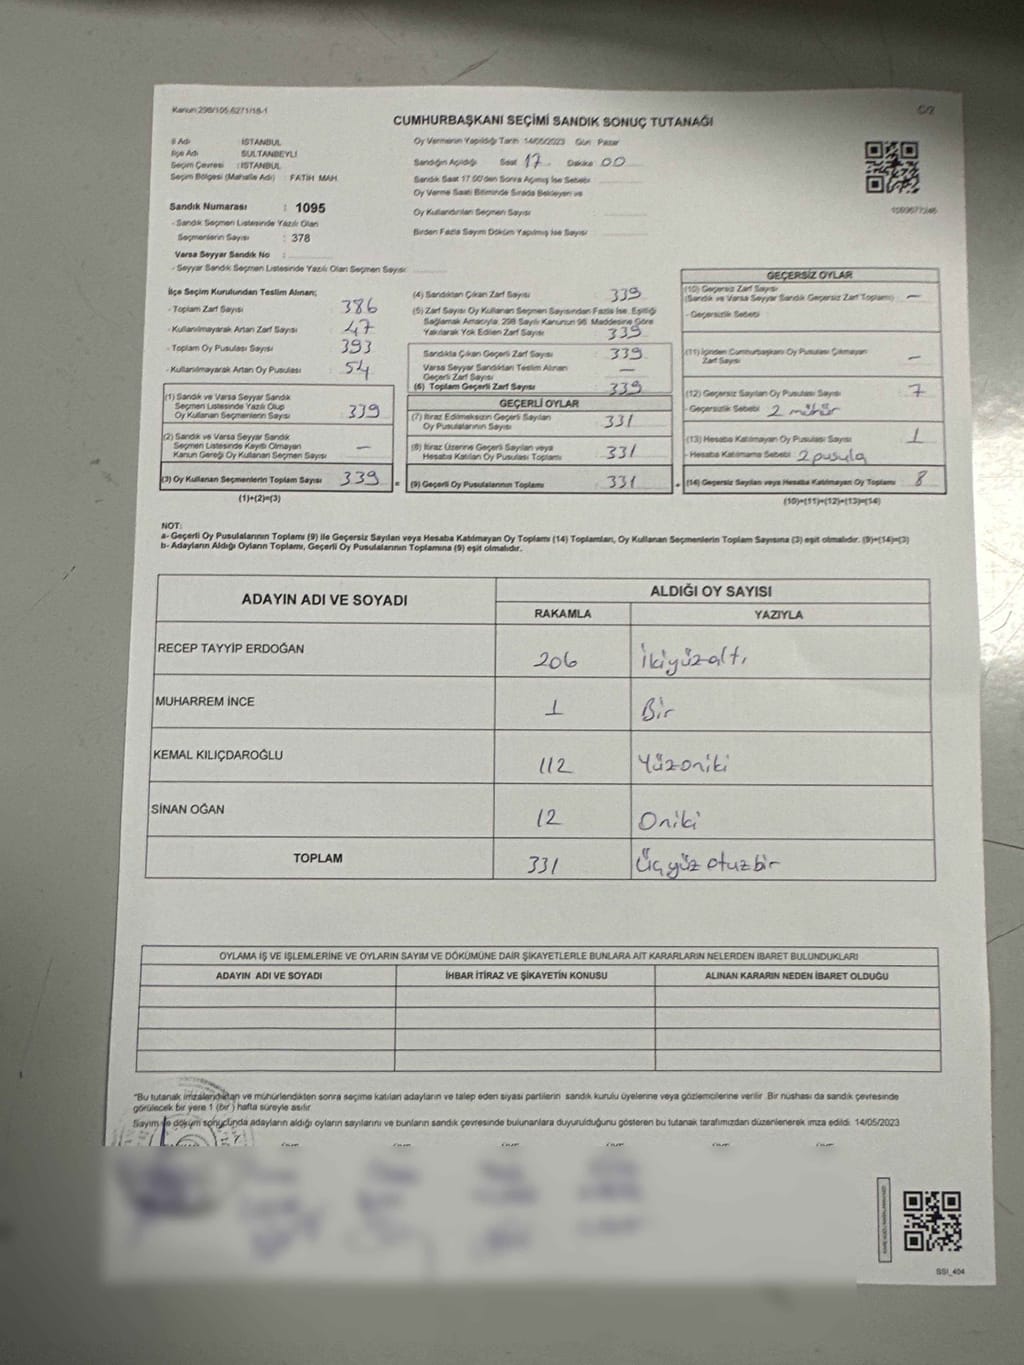 Kanun:298/105,6271/18-1
C/2
CUMHURBAŞKANI SEÇİMİ SANDIK SONUÇ TUTANAĞI
İl Adı : İSTANBUL
İlçe Adı : SULTANBEYLİ
Seçim Çevresi : İSTANBUL
Seçim Bölgesi (Mahalle Adı) : FATİH MAH.
Oy Vermenin Yapıldığı Tarih: 14/05/2023 Gün: Pazar
Sandığın Açıldığı Saat 17 Dakika 00
Sandık Saat 17.00'den Sonra Açılmış İse Sebebi
Oy Verme Saati Bitiminde Sırada Bekleyen ve
Oy Kullandırılan Seçmen Sayısı :
Birden Fazla Sayım Döküm Yapılmış İse Sayısı :
Sandık Numarası : 1095
- Sandık Seçmen Listesinde Yazılı Olan
Seçmenlerin Sayısı : 378
Varsa Seyyar Sandık No :
- Seyyar Sandık Seçmen Listesinde Yazılı Olan Seçmen Sayısı:
İlçe Seçim Kurulundan Teslim Alınan;
- Toplam Zarf Sayısı 386
- Kullanılmayarak Artan Zarf Sayısı 47
- Toplam Oy Pusulası Sayısı 393
- Kullanılmayarak Artan Oy Pusulası 54
(1) Sandık ve Varsa Seyyar Sandık
Seçmen Listesinde Yazılı Olup
Oy Kullanan Seçmenlerin Sayısı 339
(2) Sandık ve Varsa Seyyar Sandık
Seçmen Listesinde Kayıtlı Olmayan
Kanun Gereği Oy Kullanan Seçmen Sayısı —
(3) Oy Kullanan Seçmenlerin Toplam Sayısı 339 =
(1)+(2)=(3)
(4) Sandıktan Çıkan Zarf Sayısı 339
(5) Zarf Sayısı Oy Kullanan Seçmen Sayısından Fazla İse, Eşitliği
Sağlamak Amacıyla, 298 Sayılı Kanunun 98. Maddesine Göre
Yakılarak Yok Edilen Zarf Sayısı 339
Sandıkta Çıkan Geçerli Zarf Sayısı 339
Varsa Seyyar Sandıktan Teslim Alınan
Geçerli Zarf Sayısı —
(6) Toplam Geçerli Zarf Sayısı 339
GEÇERLİ OYLAR
(7) İtiraz Edilmeksizin Geçerli Sayılan
Oy Pusulalarının Sayısı 331
(8) İtiraz Üzerine Geçerli Sayılan veya
Hesaba Katılan Oy Pusulası Toplamı 331
(9) Geçerli Oy Pusulalarının Toplamı 331 +
GEÇERSİZ OYLAR
(10) Geçersiz Zarf Sayısı
(Sandık ve Varsa Seyyar Sandık Geçersiz Zarf Toplamı) —
- Geçersizlik Sebebi
(11) İçinden Cumhurbaşkanı Oy Pusulası Çıkmayan
Zarf Sayısı —
(12) Geçersiz Sayılan Oy Pusulası Sayısı 7
- Geçersizlik Sebebi 2 mühür
(13) Hesaba Katılmayan Oy Pusulası Sayısı 1
- Hesaba Katılmama Sebebi 2 pusula
(14) Geçersiz Sayılan veya Hesaba Katılmayan Oy Toplamı 8
(10)+(11)+(12)+(13)=(14)
NOT:
a- Geçerli Oy Pusulalarının Toplamı (9) ile Geçersiz Sayılan veya Hesaba Katılmayan Oy Toplamı (14) Toplamları, Oy Kullanan Seçmenlerin Toplam Sayısına (3) eşit olmalıdır. (9)+(14)=(3)
b- Adayların Aldığı Oyların Toplamı, Geçerli Oy Pusulalarının Toplamına (9) eşit olmalıdır.
ADAYIN ADI VE SOYADI
ALDIĞI OY SAYISI
RAKAMLA YAZIYLA
RECEP TAYYİP ERDOĞAN 206 İkiyüzaltı
MUHARREM İNCE 1 Bir
KEMAL KILIÇDAROĞLU 112 Yüzoniki
SİNAN OĞAN 12 Oniki
TOPLAM 331 Üçyüz otuzbir
OYLAMA İŞ VE İŞLEMLERİNE VE OYLARIN SAYIM VE DÖKÜMÜNE DAİR ŞİKAYETLERLE BUNLARA AİT KARARLARIN NELERDEN İBARET BULUNDUKLARI
ADAYIN ADI VE SOYADI İHBAR İTİRAZ VE ŞİKAYETİN KONUSU ALINAN KARARIN NEDEN İBARET OLDUĞU
"Bu tutanak imzalandıktan ve mühürlendikten sonra seçime katılan adayların ve talep eden siyasi partilerin sandık kurulu üyelerine veya gözlemcilerine verilir. Bir nüshası da sandık çevresinde
görülecek bir yere 1 (bir) hafta süreyle asılır.
Sayım ve döküm sonucunda adayların aldığı oyların sayılarını ve bunların sandık çevresinde bulunanlara duyurulduğunu gösteren bu tutanak tarafımızdan düzenlenerek imza edildi. 14/05/2023
SSI_404